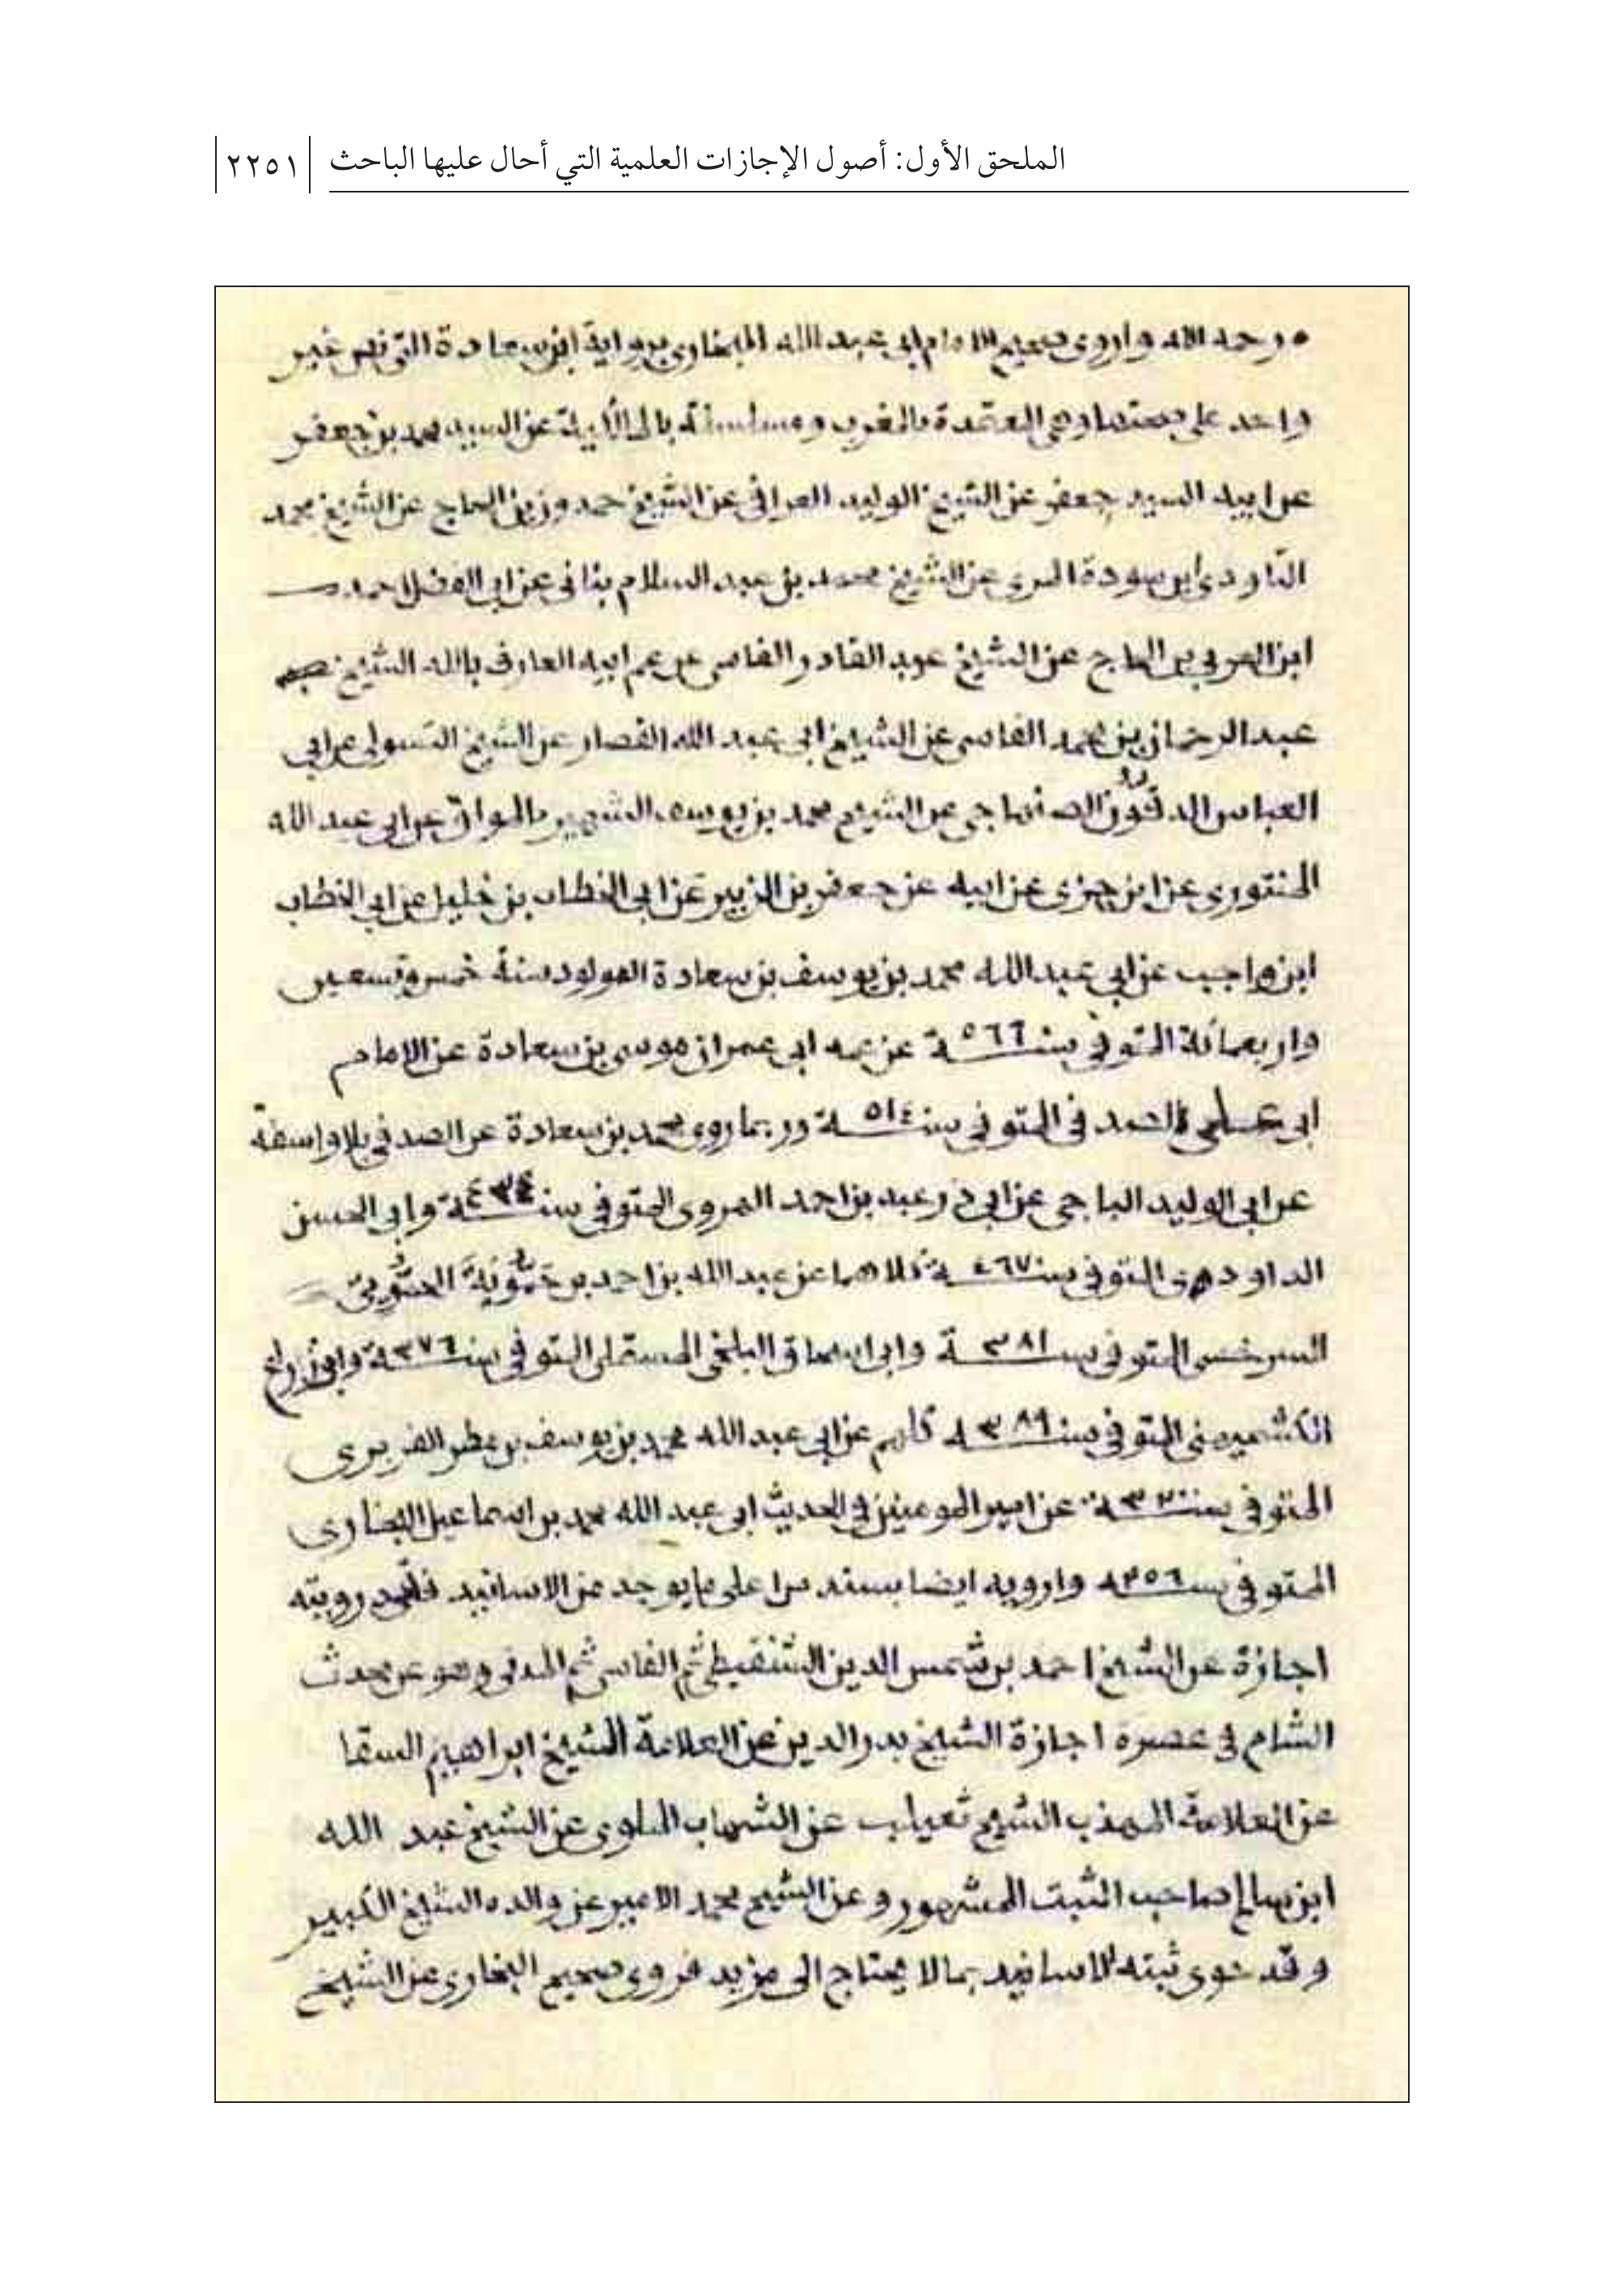 الملحق الأول: أصول الإجازات العلمية التي أحال عليها الباحث
٢٢٥١
رحمه الله واروي صحيح الامام ابي عبد الله البخاري برواية ابن سعادة التي نص غير
واحد على المعتمدة بالمغرب ومسلسلة بالمالكية عن السيد محمد بن جعفر
عن ابيه السيد جعفر عن الشيخ الوليد العراقي عن الشيخ حمدون بن الحاج عن الشيخ محمد
التاودي ابن سودة المري عن الشيخ محمد بن عبد السلام بناني عن ابي الفضل احمد
ابن العربي بن الحاج عن الشيخ عبد القادر الفاسي عن عم ابيه العارف بالله الشيخ
عبد الرحمان بن محمد الفاسي عن الشيخ ابي عبد الله القصار عن الشيخ التسولي عن ابي
العباس الدقون الصنهاجي عن الشيخ محمد بن يوسف الشهير بالمواق عن ابي عبد الله
المنتوري عن ابن جزي عن ابيه عن جعفر بن الزبير عن ابي الخطاب بن خليل عن ابي الخطاب
ابن واجب عن ابي عبد الله محمد بن يوسف بن سعادة المولود سنة خمس وتسعين
واربعمائة المتوفي سنة ٥٦٦ عن عمه ابي عمران موسى بن سعادة عن الامام
ابي علي الصدفي المتوفي سنة ٥١٤ وربما روى محمد بن سعادة عن الصدفي بلا واسطة
عن ابي الوليد الباجي عن ابي ذر عبد بن احمد الهروي المتوفي سنة ٤٣٤ وابي الحسن
الداودي المتوفي سنة ٤٦٧ كلاهما عن عبد الله بن احمد بن حمّوية الحمّويي
السرخسي المتوفي سنة ٣٨١ وابي اسحاق البلخي المستملي المتوفي سنة ٣٧٦ وابي
الكشميهني المتوفي سنة ٣٨٩ كلهم عن ابي عبد الله محمد بن يوسف بن مطر الفربري
المتوفي سنة ٣٢٠ عن امير المومنين في الحديث ابي عبد الله محمد بن اسماعيل البخاري
المتوفي سنة ٢٥٦ وارويه ايضا بسند من اعلى ما يوجد من الاسانيد فلقد رويته
اجازة عن الشيخ احمد بن شمس الدين الشنقيطي ثم الفاسي ثم المدني وهو عن محدث
الشام في عصره اجازة الشيخ بدر الدين عن العلامة الشيخ ابراهيم السقا
عن العلامة المهذب الشيخ ثعيلب عن الشهاب الملوي عن الشيخ عبد الله
ابن سالم صاحب الثبت المشهور وعن الشيخ محمد الامير عن والده الشيخ الكبير
وقد حوى ثبته الاسانيد بما لا يحتاج الى مزيد فروى صحيح البخاري عن الشيخ